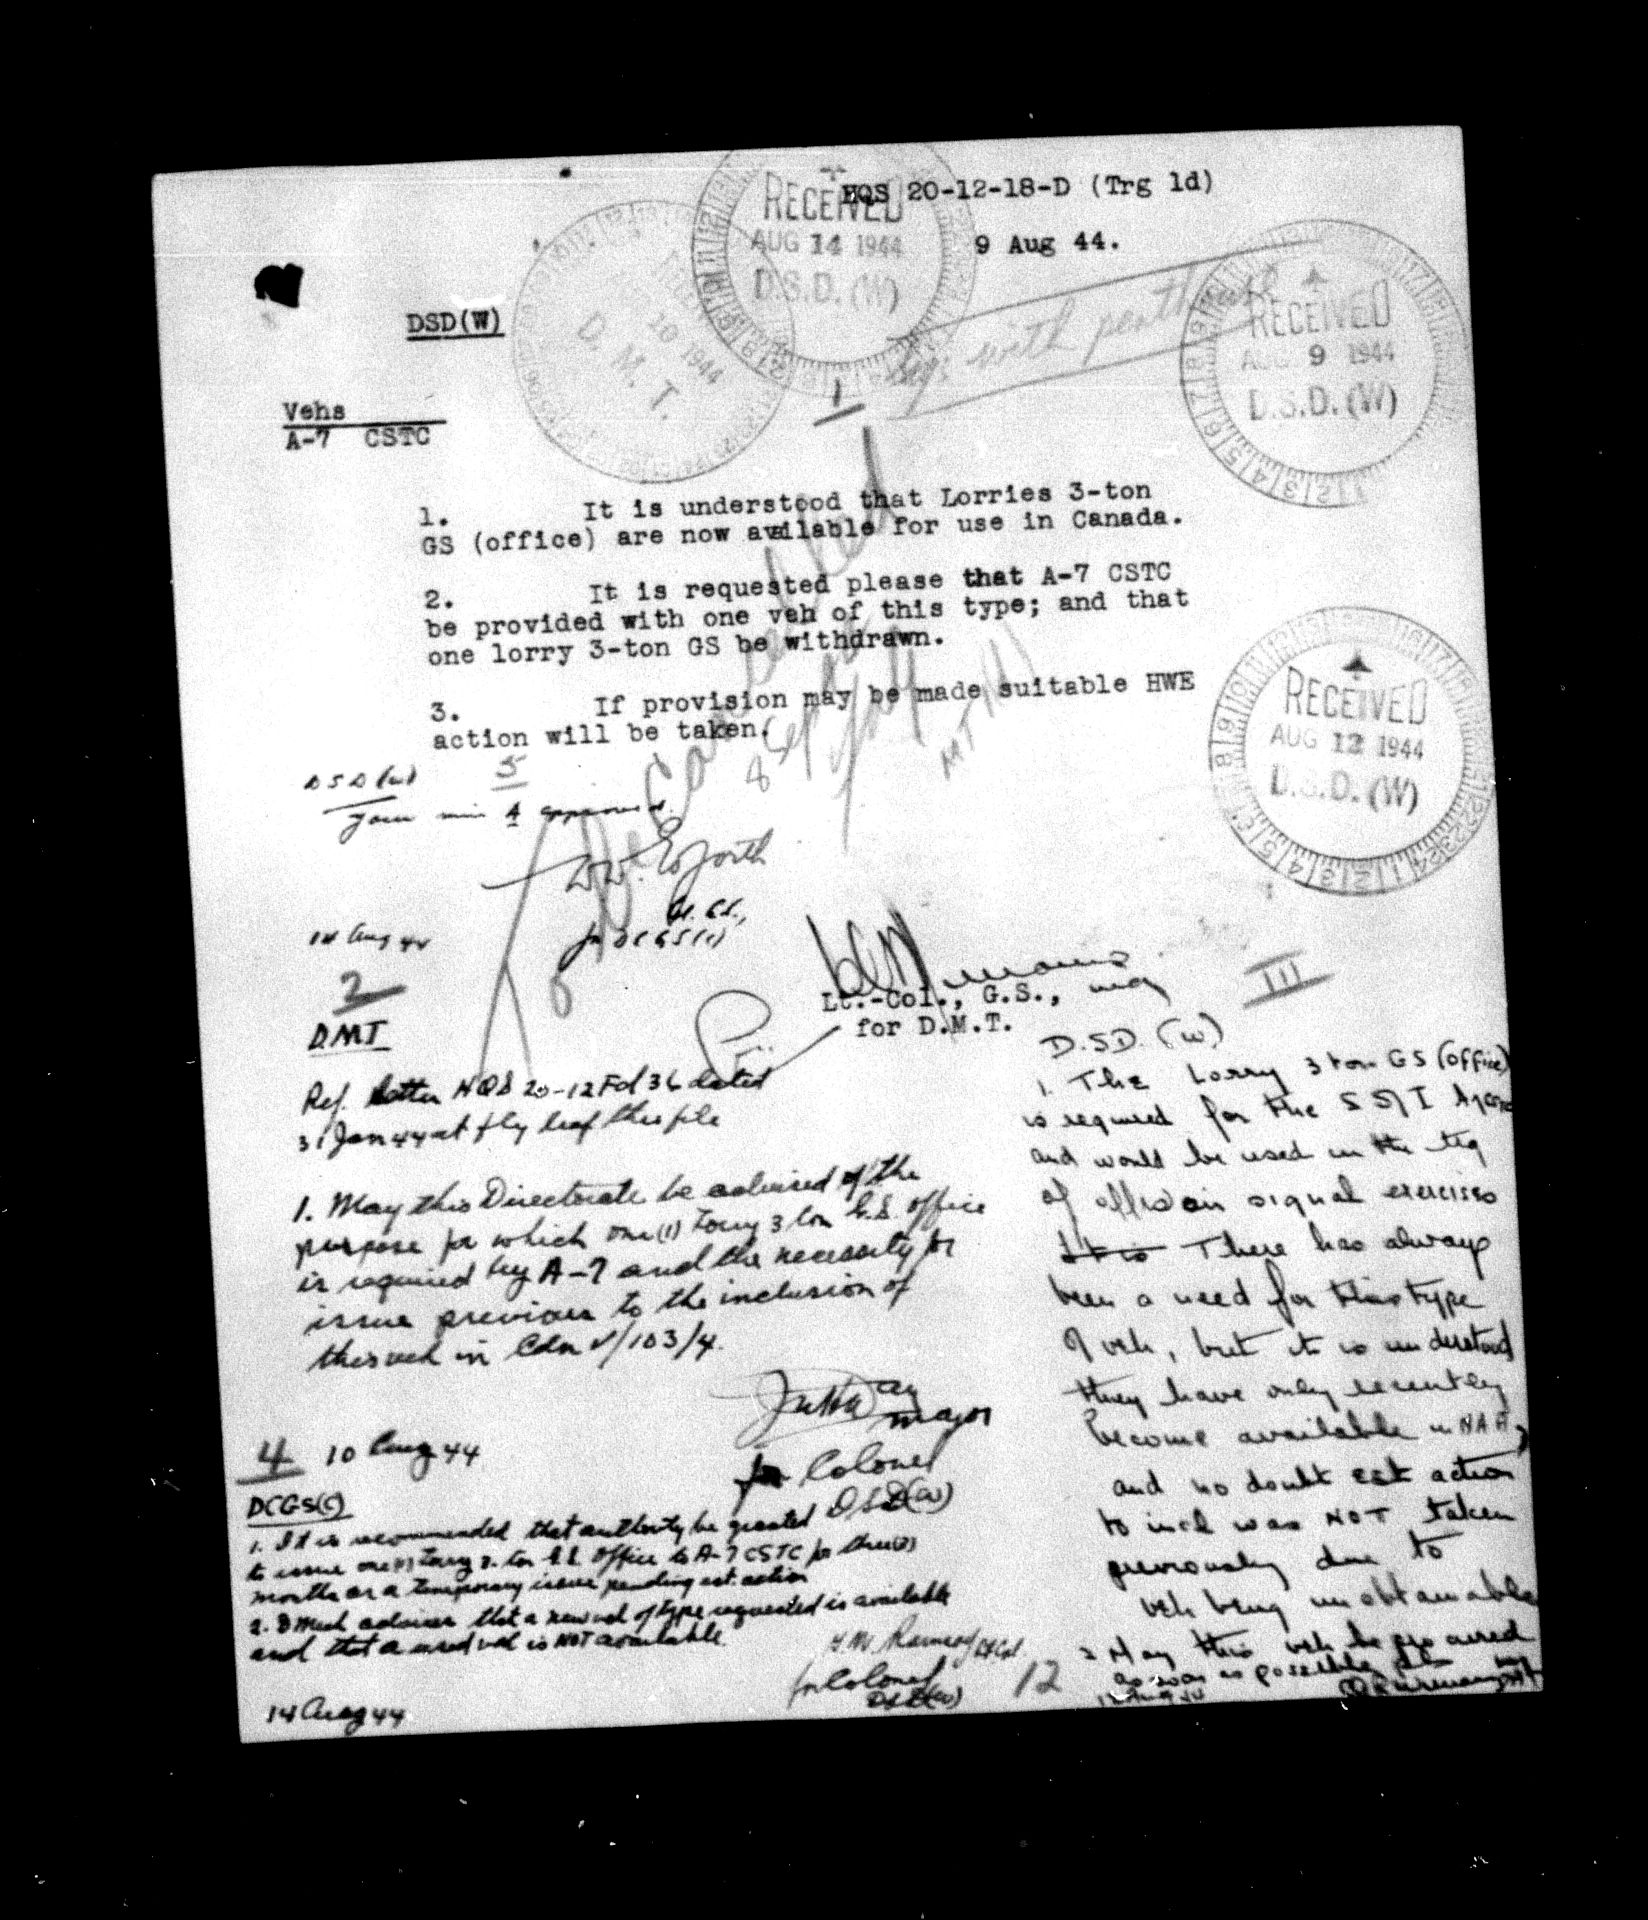 HQS 20-12-18-D (Trg 1d)
9 Aug 44.
RECEIVED
AUG 14 1944
D.S.D. (W)
10 1944
D. M. T.
RECEIVED
AUG 9 1944
D.S.D. (W)
with
DSD(W)
1
Vehs
A-7 CSTC
1. It is understood that Lorries 3-ton
GS (office) are now available for use in Canada.
2. It is requested please that A-7 CSTC
be provided with one veh of this type; and that
one lorry 3-ton GS be withdrawn.
3. If provision may be made suitable HWE
action will be taken.
RECEIVED
AUG 12 1944
D.S.D. (W)
Cancelled
8 Sep
MT
DSD(W)
5
Your min 4 approved.
for DCGS(C)
14 Aug 44
Lt.-Col., G.S.,
for D.M.T.
2
DMT
Ref. letter HQS 20-12 Fd 36 dated
31 Jan 44 at fly leaf this file
1. May this Directorate be advised of the
purpose for which one (1) Lorry 3 ton G.S. office
is required by A-7 and the necessity for
issue previous to the inclusion of
this veh in Cdn V/103/4.
Major
for Colonel
DSD(W)
10 Aug 44
III
D.S.D. (W)
1. The Lorry 3 ton GS (office)
is required for the
and would be used in the trg
of offrs in signal exercises
It is There has always
been a need for this type
of veh, but it is understood
they have only recently
become available in
and no doubt est action
to incl was NOT taken
previously due to
veh being unobtainable
2 May this veh be procured
as soon as possible pls
4
DCGS(C)
1. It is recommended that authority be granted
to issue one (1) Lorry 3-ton G.S. Office to A-7 CSTC for three (3)
months as a temporary issue pending est. action
2. D Mech advises that a new veh of type requested is available
and that a used veh is NOT available
for Colonel
DSD(W)
14 Aug 44
12